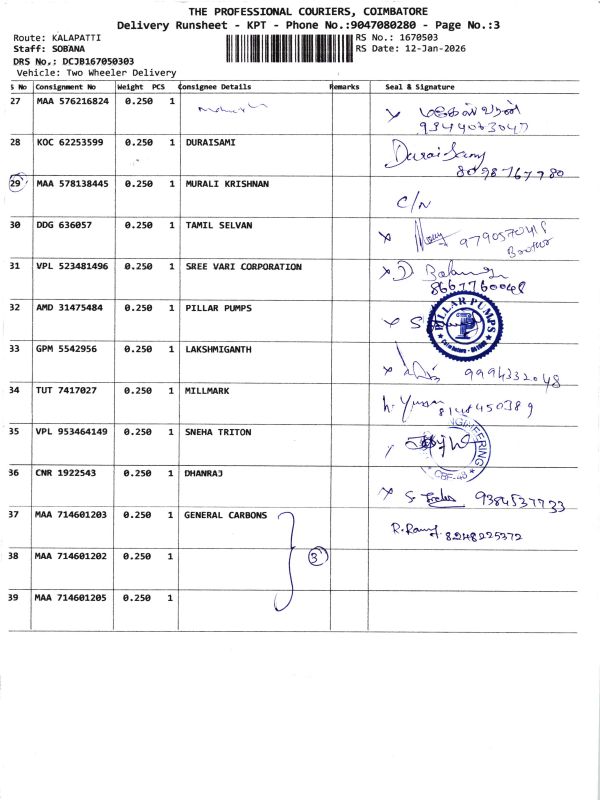 THE PROFESSIONAL COURIERS, COIMBATORE
Delivery Runsheet - KPT - Phone No.:9047080280 - Page No.:3
Route: KALAPATTI
RS No.: 1670503
Staff: SOBANA
RS Date: 12-Jan-2026
DRS No,: DCJB167050303
Vehicle: Two Wheeler Delivery
S No Consignment No Weight PCS Consignee Details Remarks Seal & Signature
27 MAA 576216824 0.250 1
மகேஸ்வரன்
9344063047
28 KOC 62253599 0.250 1 DURAISAMI
Durai Samy
8098767980
29 MAA 578138445 0.250 1 MURALI KRISHNAN
C/N
30 DDG 636057 0.250 1 TAMIL SELVAN
31 VPL 523481496 0.250 1 SREE VARI CORPORATION
8667760048
32 AMD 31475484 0.250 1 PILLAR PUMPS
PILLAR PUMPS
33 GPM 5542956 0.250 1 LAKSHMIGANTH
9994332048
34 TUT 7417027 0.250 1 MILLMARK
8148450389
35 VPL 953464149 0.250 1 SNEHA TRITON
36 CNR 1922543 0.250 1 DHANRAJ
9384537733
37 MAA 714601203 0.250 1 GENERAL CARBONS
8248225372
38 MAA 714601202 0.250 1
3
39 MAA 714601205 0.250 1